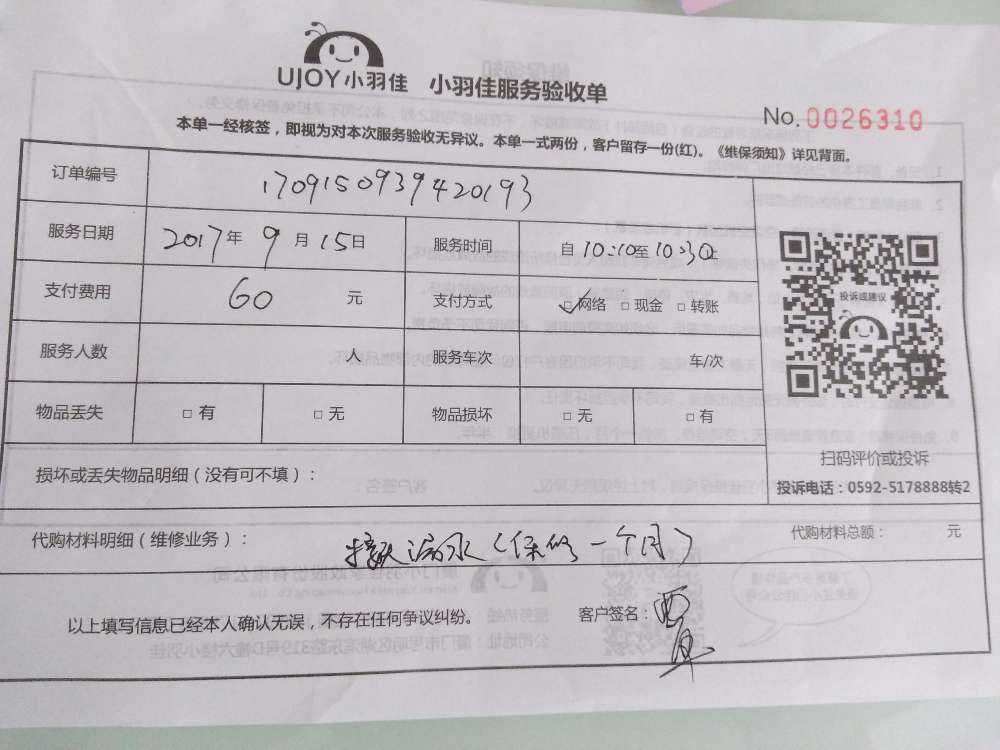 UJOY小羽佳 小羽佳服务验收单
No. 0026310
本单一经核签，即视为对本次服务验收无异议。本单一式两份，客户留存一份(红)。《维保须知》详见背面。
订单编号 1709150939420193
服务日期 2017年 9月 15日 服务时间 自 10:10至 10:30
支付费用 60 元 支付方式 □网络 □现金 □转账
投诉或建议
服务人数 人 服务车次 车/次
物品丢失 □有 □无 物品损坏 □无 □有
损坏或丢失物品明细（没有可不填）：
扫码评价或投诉
投诉电话：0592-5178888转2
代购材料明细（维修业务）： 漏水（保修一个月） 代购材料总额： 元
以上填写信息已经本人确认无误，不存在任何争议纠纷。 客户签名：